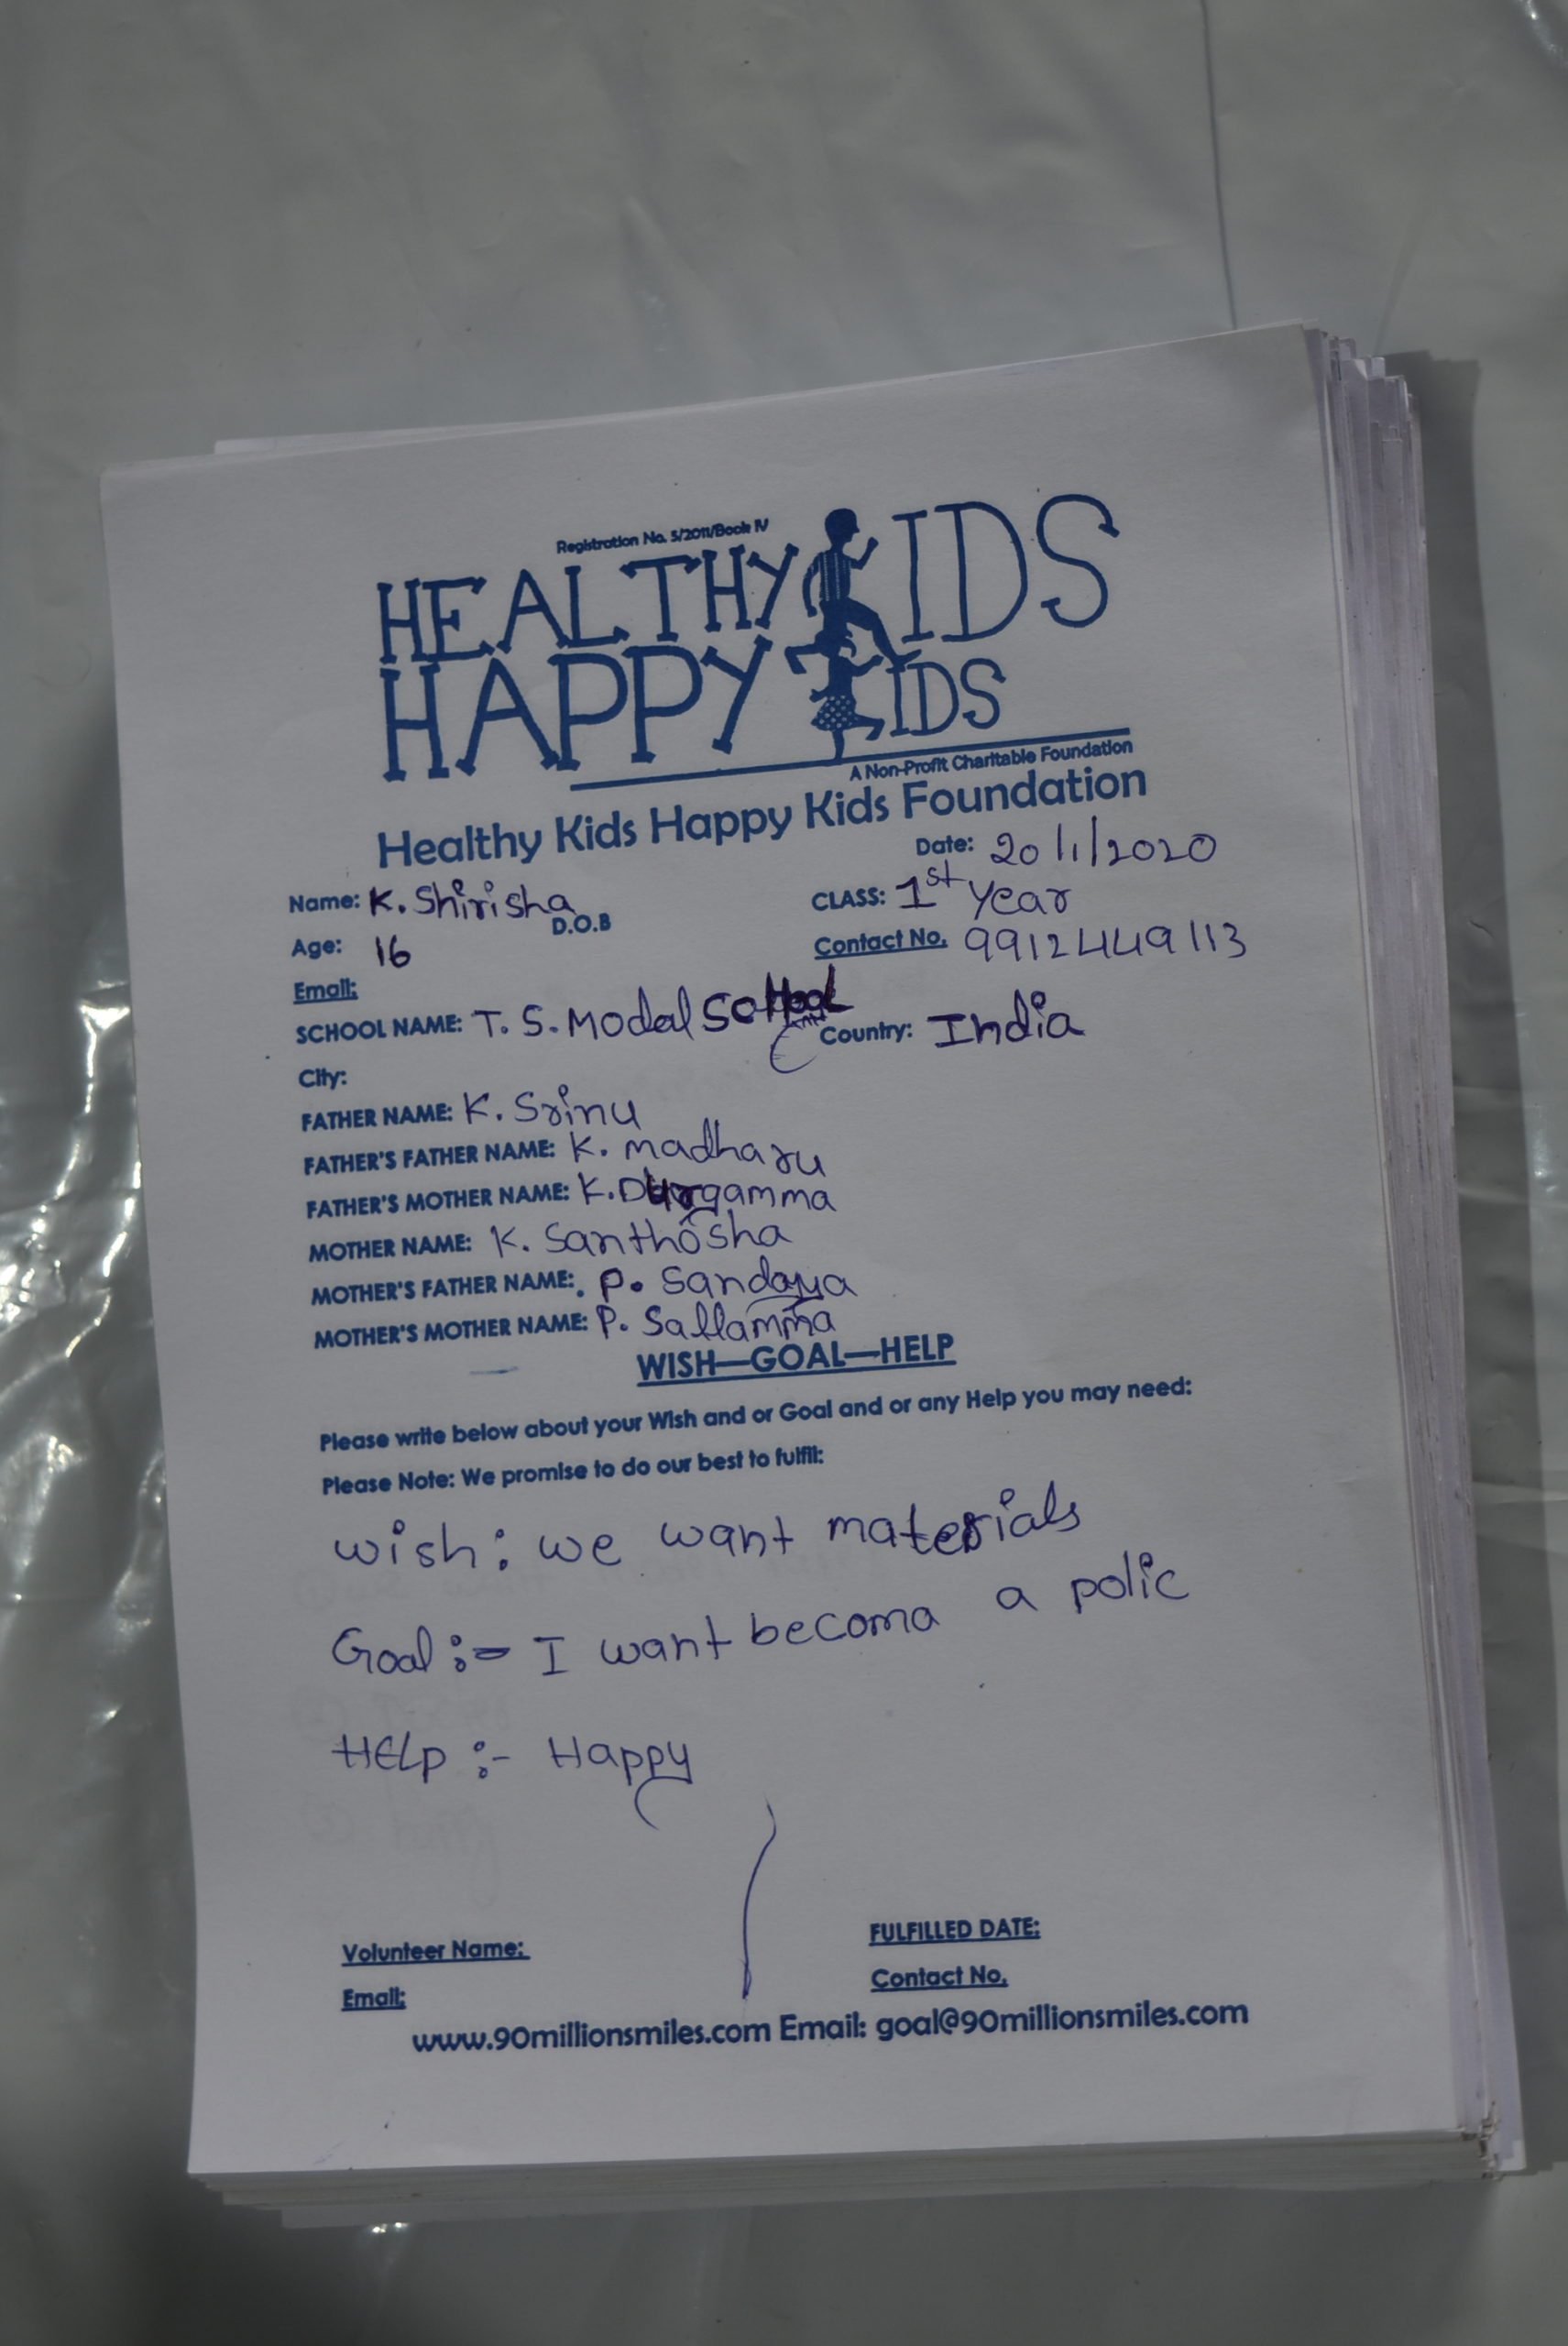 Registration No. 5/2011/Book IV
HEALTHY KIDS
HAPPY KIDS
A Non-Profit Charitable Foundation
Healthy Kids Happy Kids Foundation
Date: 20/1/2020
Name: K. Shirisha D.O.B
CLASS: 1st Year
Age: 16
Contact No. 9912449113
Email:
SCHOOL NAME: T. S. Modal School
Country: India
City:
FATHER NAME: K. Srinu
FATHER'S FATHER NAME: K. madharu
FATHER'S MOTHER NAME: K. Durgamma
MOTHER NAME: K. Santhosha
MOTHER'S FATHER NAME: P. Sandaya
MOTHER'S MOTHER NAME: P. Sallamma
WISH—GOAL—HELP
Please write below about your Wish and or Goal and or any Help you may need:
Please Note: We promise to do our best to fulfil:
wish: we want materials
Goal :- I want becoma a polic
HELP :- Happy
Volunteer Name:
FULFILLED DATE:
Email:
Contact No.
www.90millionsmiles.com Email: goal@90millionsmiles.com